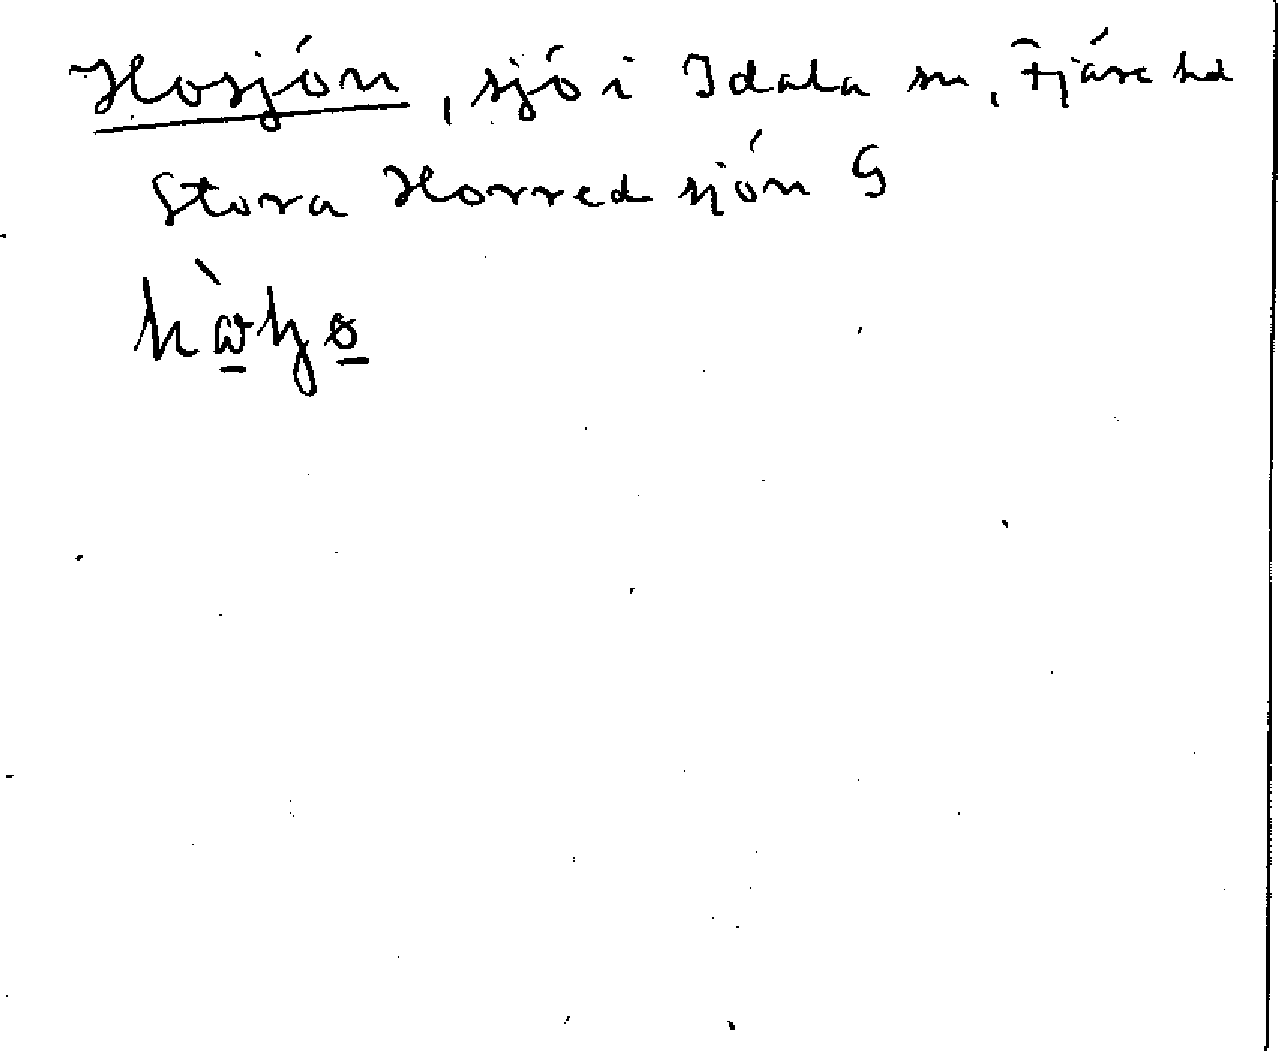 Hosjön, sjö i Idala sn, Fjäre hd
Stora Horred sjön G